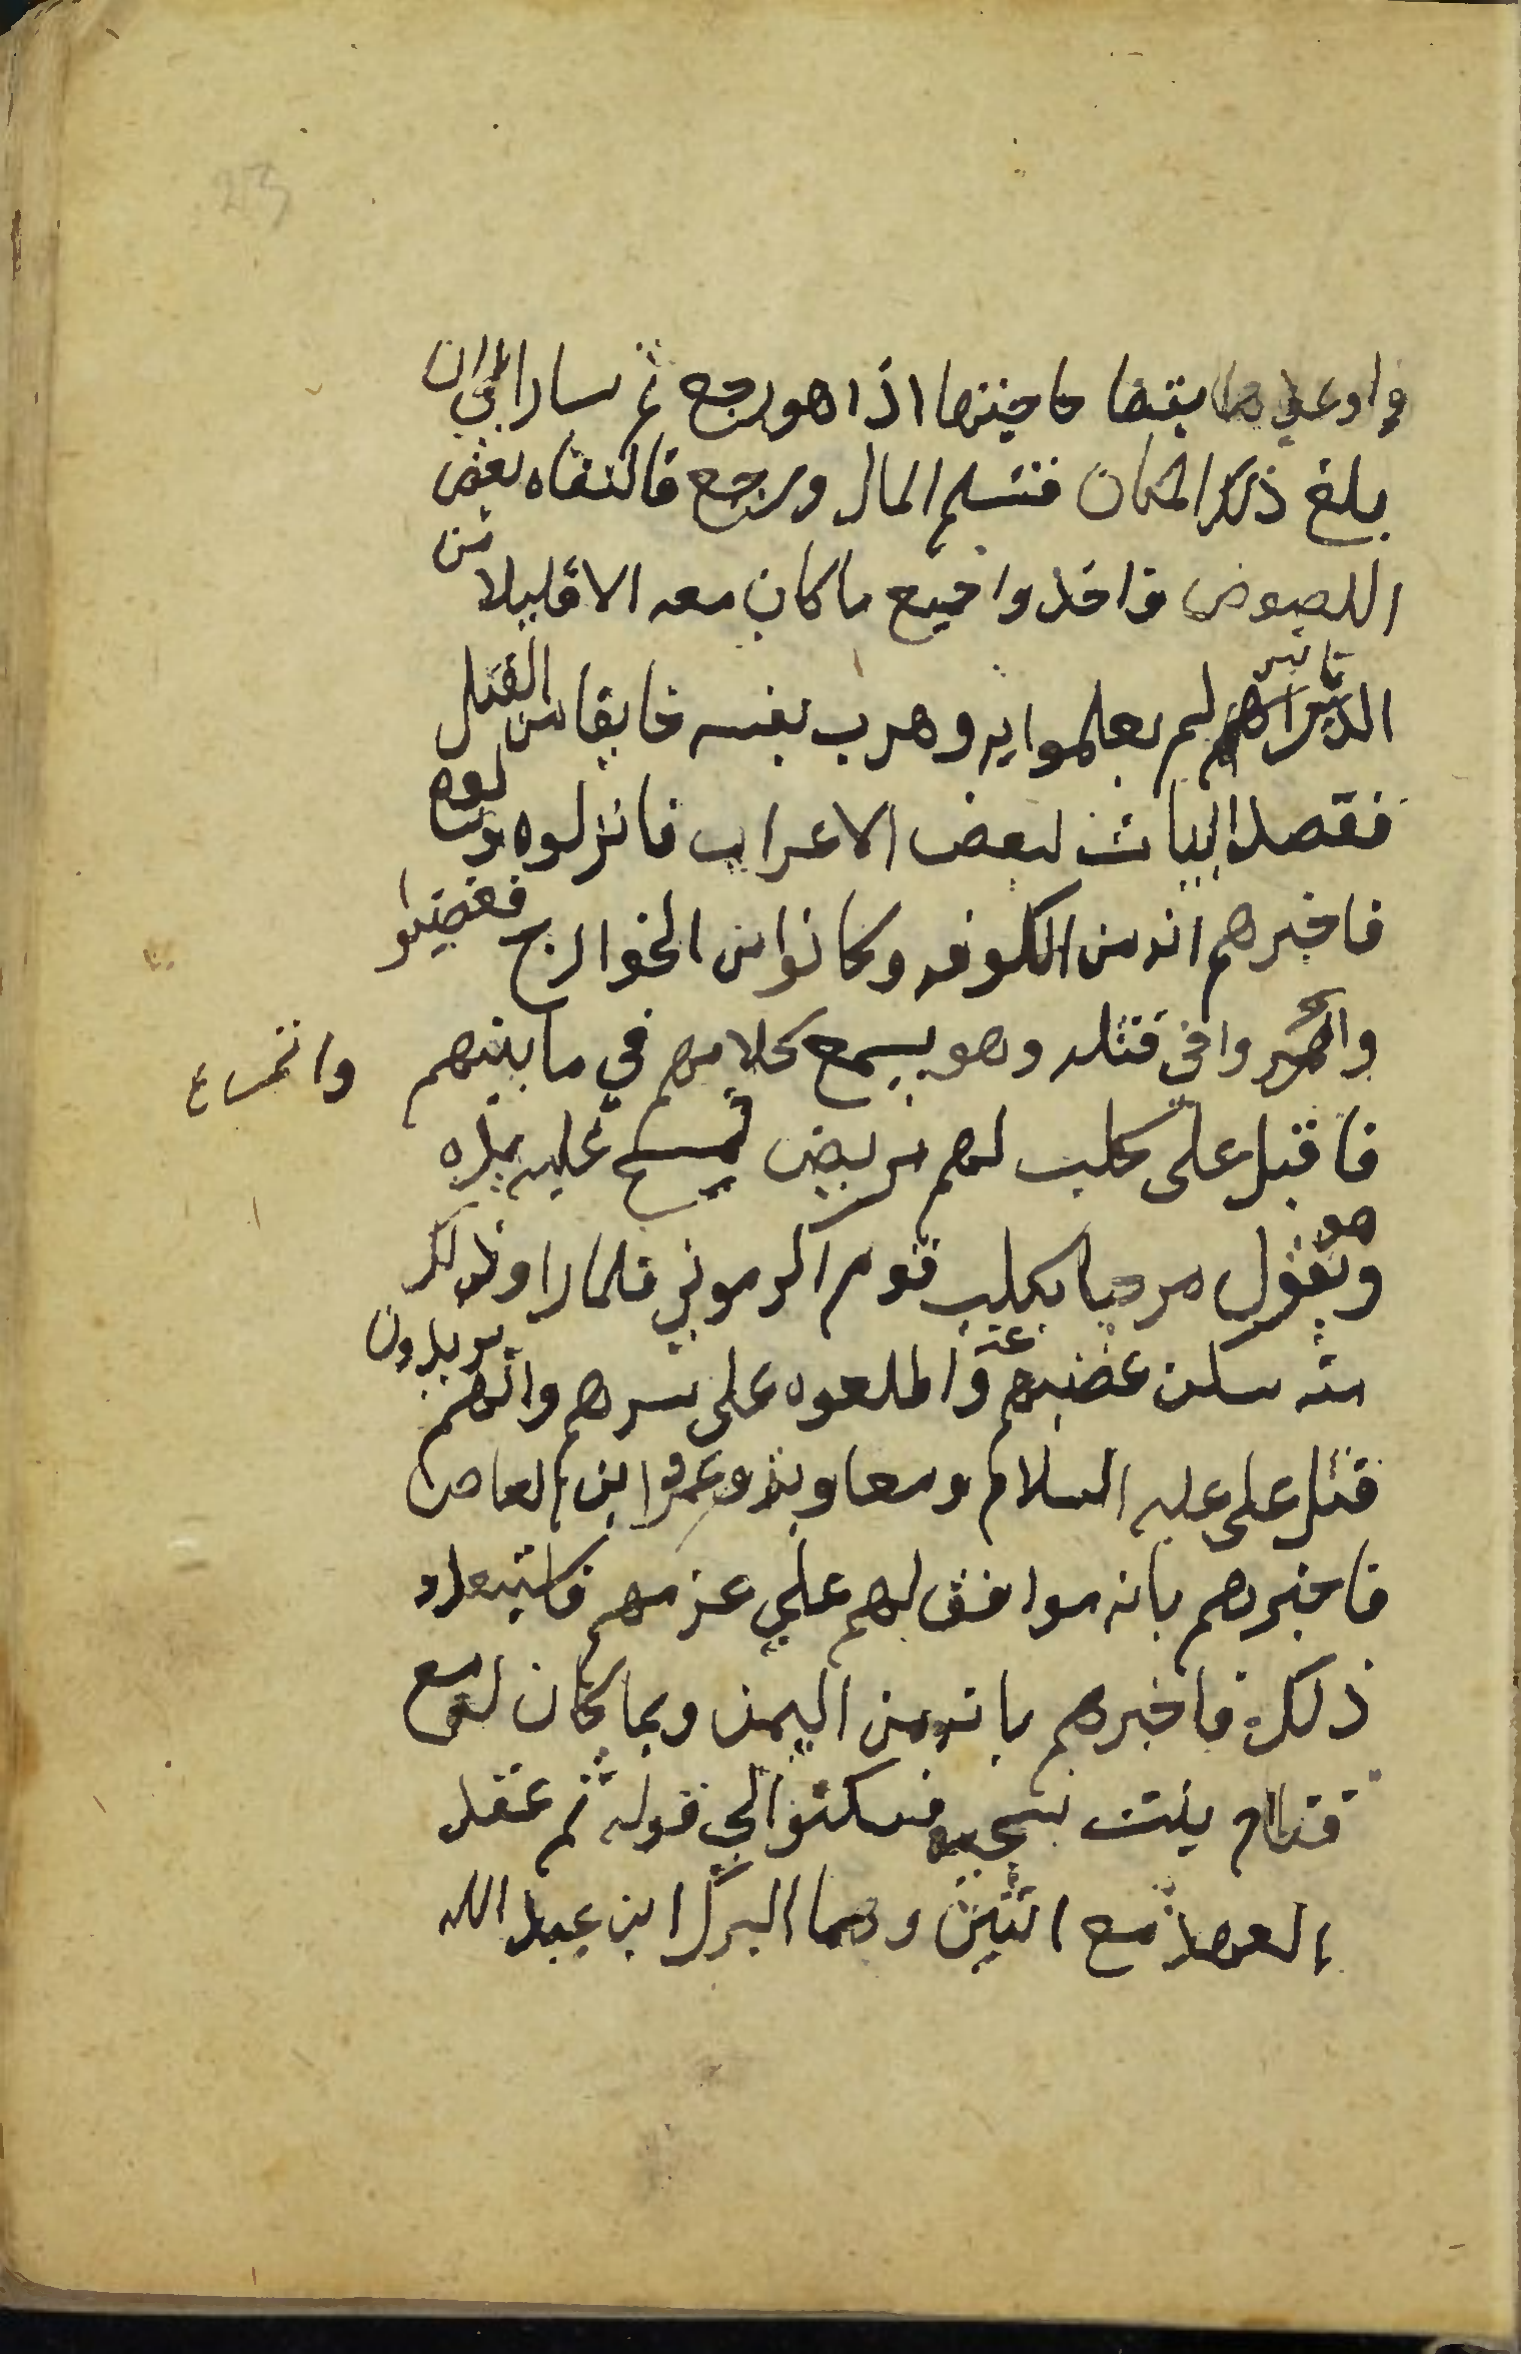 حاجتها اذا هو رجع ثم سار الى ان
بلغ ذلك المكان فتسلم المال ورجع فالتقاه بعض
اللصوص فاخذوا جميع ما كان معه الا قليلا من
الدنانير لم يعلموا به وهرب بنفسه خايفا من القتل
فقصد البيات لبعض الاعراب فانزلوه وسالوه
فاخبرهم انه من الكوفه وكانوا من الخوارج فغضبوا
في قتله وهو يسمع كلامهم في ما بينهم
فاقبل على كلب لهم يربض عليه بيده
وهو يقول مرحبا بكليب قوم اكرموني فلما راوا ذلك
منه سكن غضبهم عنه واطلعوه على سرهم وانهم يريدون
قتل علي عليه السلام ومعاوية وعمرو ابن العاص
فاخبرهم بانه موافق لهم علي عزمهم فاستبعدوا
ذلك فاخبرهم بانه من اليمن وبما كان له مع
قتام بنت فسكنوا الي قوله ثم عقد
العهد مع اثنين وهما البرك ابن عبد الله